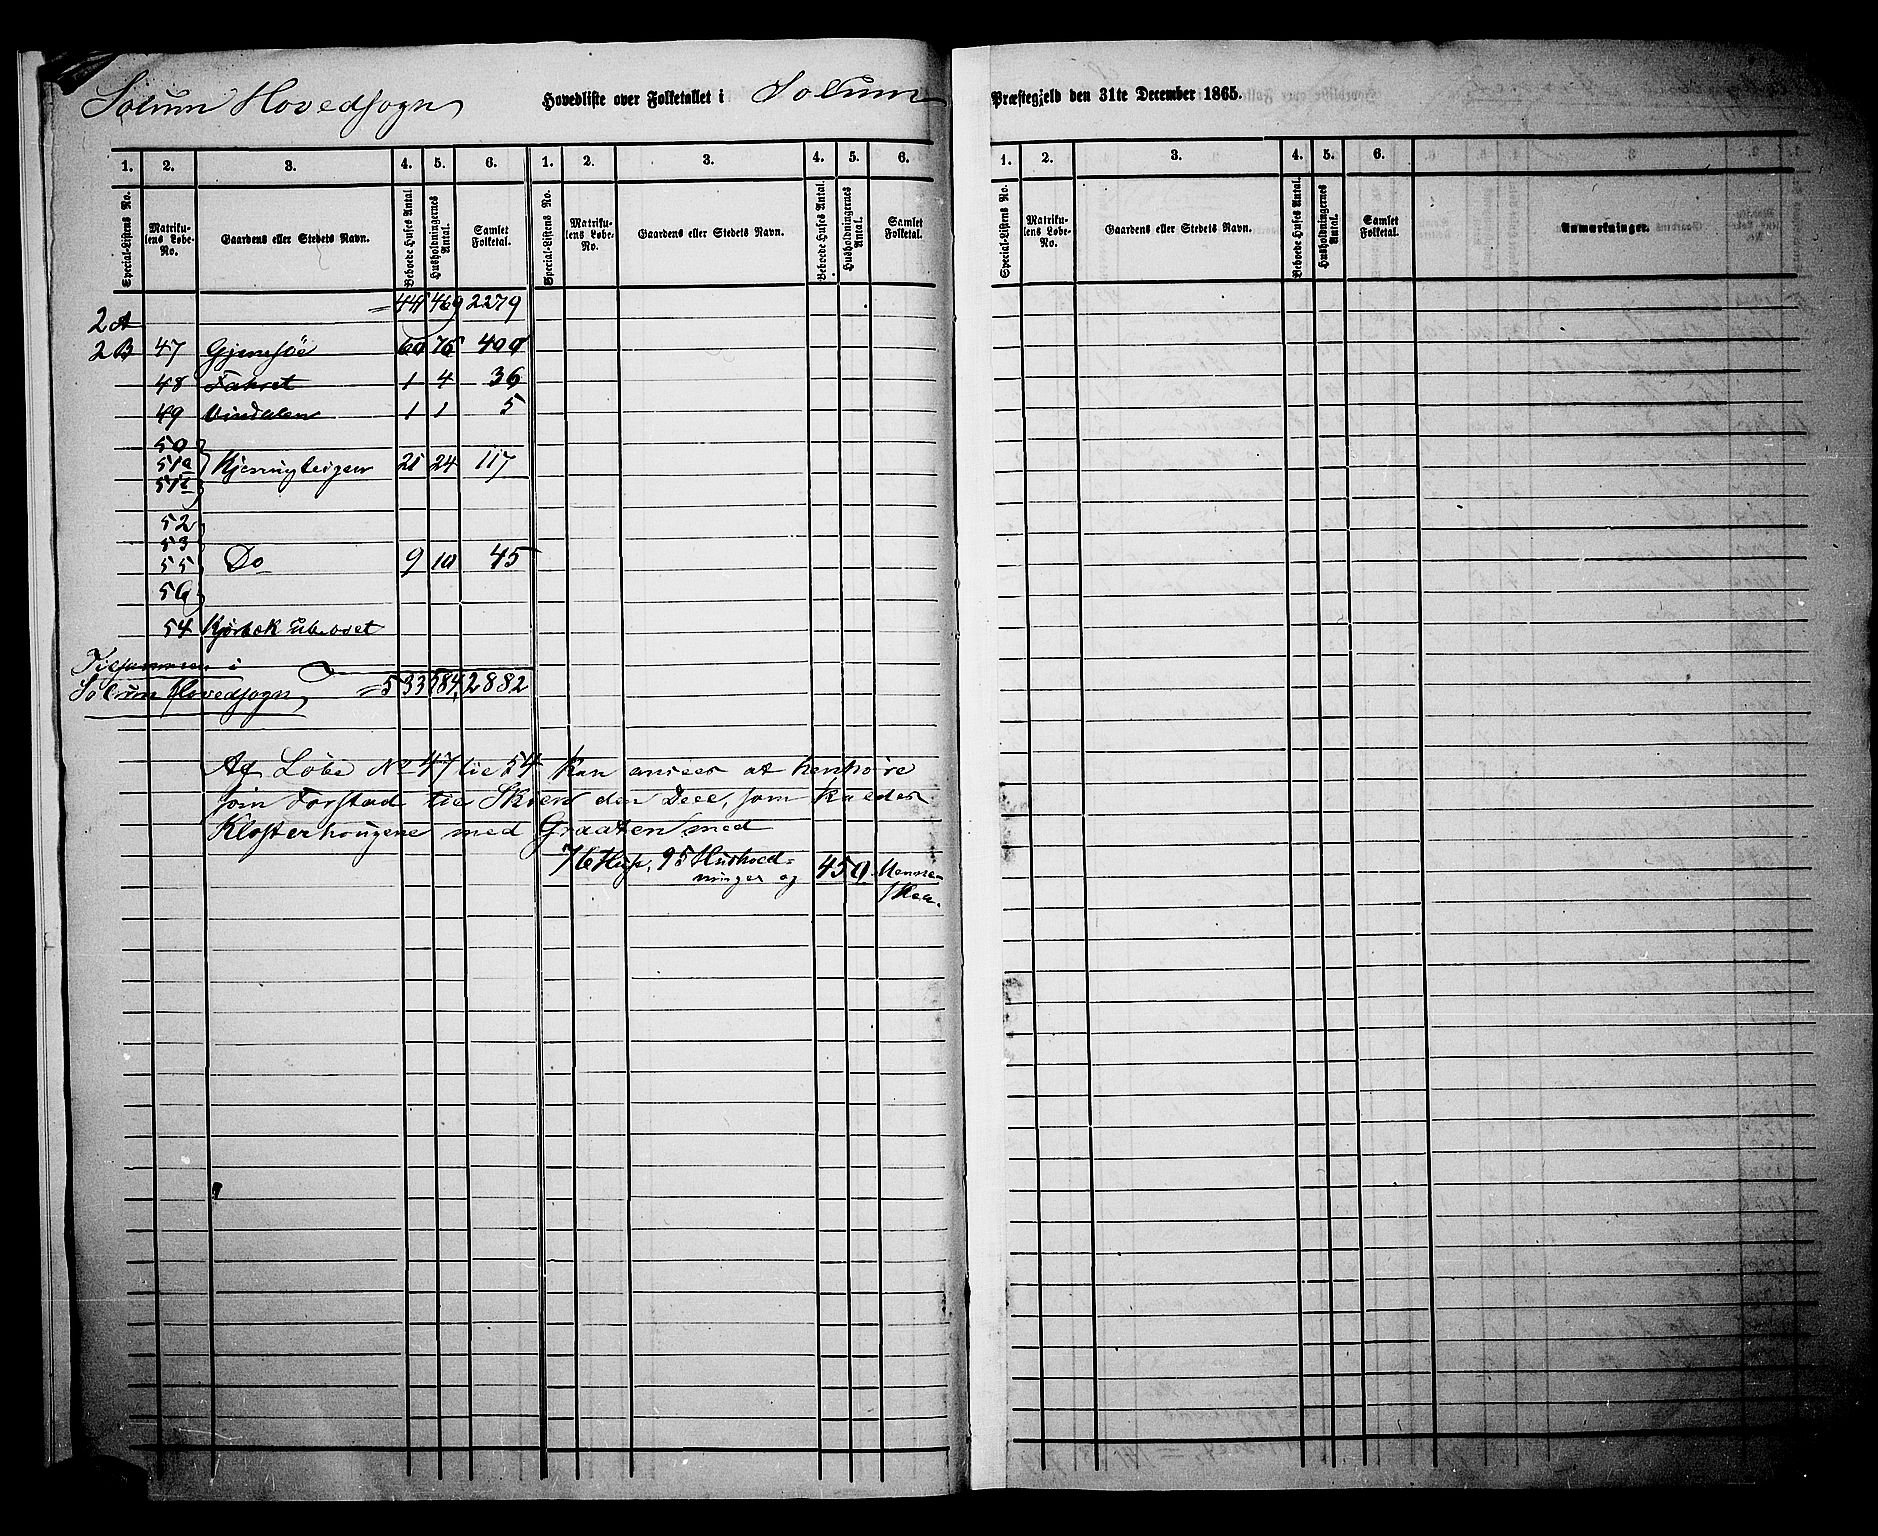 Solum Hovedsogn Hovedliste over Folketallet i Solum Præstegjeld den 31te December 1865.
1. 2. 3. 4. 5. 6. 1. 2. 3. 4. 5. 6. 1. 2. 3. 4. 5. 6.
Special-Listens No. Matrikulens Løbe-No. Gaardens eller Stedets Navn. Beboede Huses Antal Husholdningernes Antal. Samlet Folketal. Special-Listens No. Matrikulens Løbe-No. Gaardens eller Stedets Navn. Beboede Huses Antal. Husholdningernes Antal. Samlet Folketal. Special-Listens No. Matrikulens Løbe-No. Gaardens eller Stedets Navn. Beboede Huses Antal. Husholdningernes Antal. Samlet Folketal. Anmærkninger.
= 441 469 2279
2 A
2 B 47 Gjemsøe 60 76 400
48 Fakret 1 4 36
49 1 1 5
50
51a Kjerringteigen 21 24 117
51b
52
53
55 Do 9 10 45
56
54 Kjørbæk ubeboet
Tilsammen i
Solum Hovedsogn = 533 584 2882
Af Løbe No 47 til 54 kan ansees at henhøre
som Forstad til Skien den Deel, som kaldes
Klosterhougene med Graaten med
76 Huse, 95 Hushold-
ninger og 450 Menne-
sker.